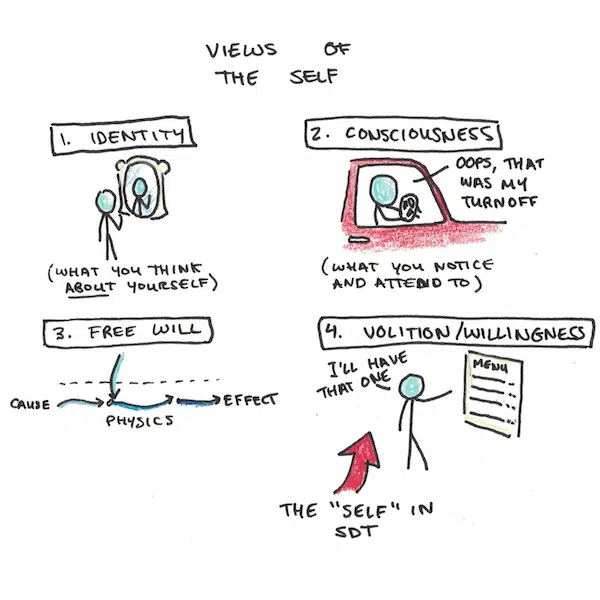 VIEWS OF
THE SELF
1. IDENTITY
(WHAT YOU THINK
ABOUT YOURSELF)
2. CONSCIOUSNESS
OOPS, THAT
WAS MY
TURNOFF
(WHAT YOU NOTICE
AND ATTEND TO)
3. FREE WILL
CAUSE
EFFECT
PHYSICS
4. VOLITION/WILLINGNESS
I'LL HAVE
THAT ONE
MENU
THE "SELF" IN
SDT